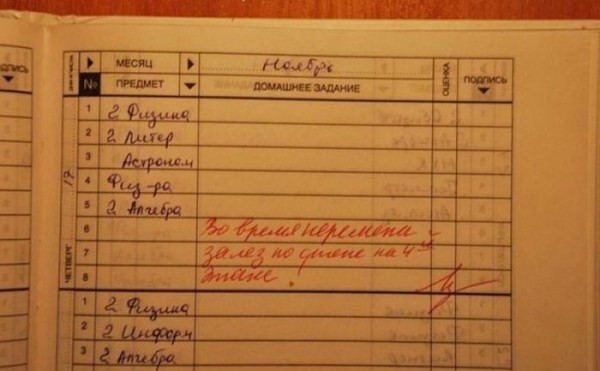 ДПИСЬ
МЕСЯЦ Ноябрь ОЦЕНКА ПОДПИСЬ
№ ПРЕДМЕТ ДОМАШНЕЕ ЗАДАНИЕ
ЧЕТВЕРГ 17
1 2 Физика
2 2 Литер
3 Астроном
4 Физ-ра
5 2 Алгебра
6 Во время перемены -
7 залез по стене на 4ый
8 этаж.
1 2 Физика
2 2 Информ
3 2 Алгебра